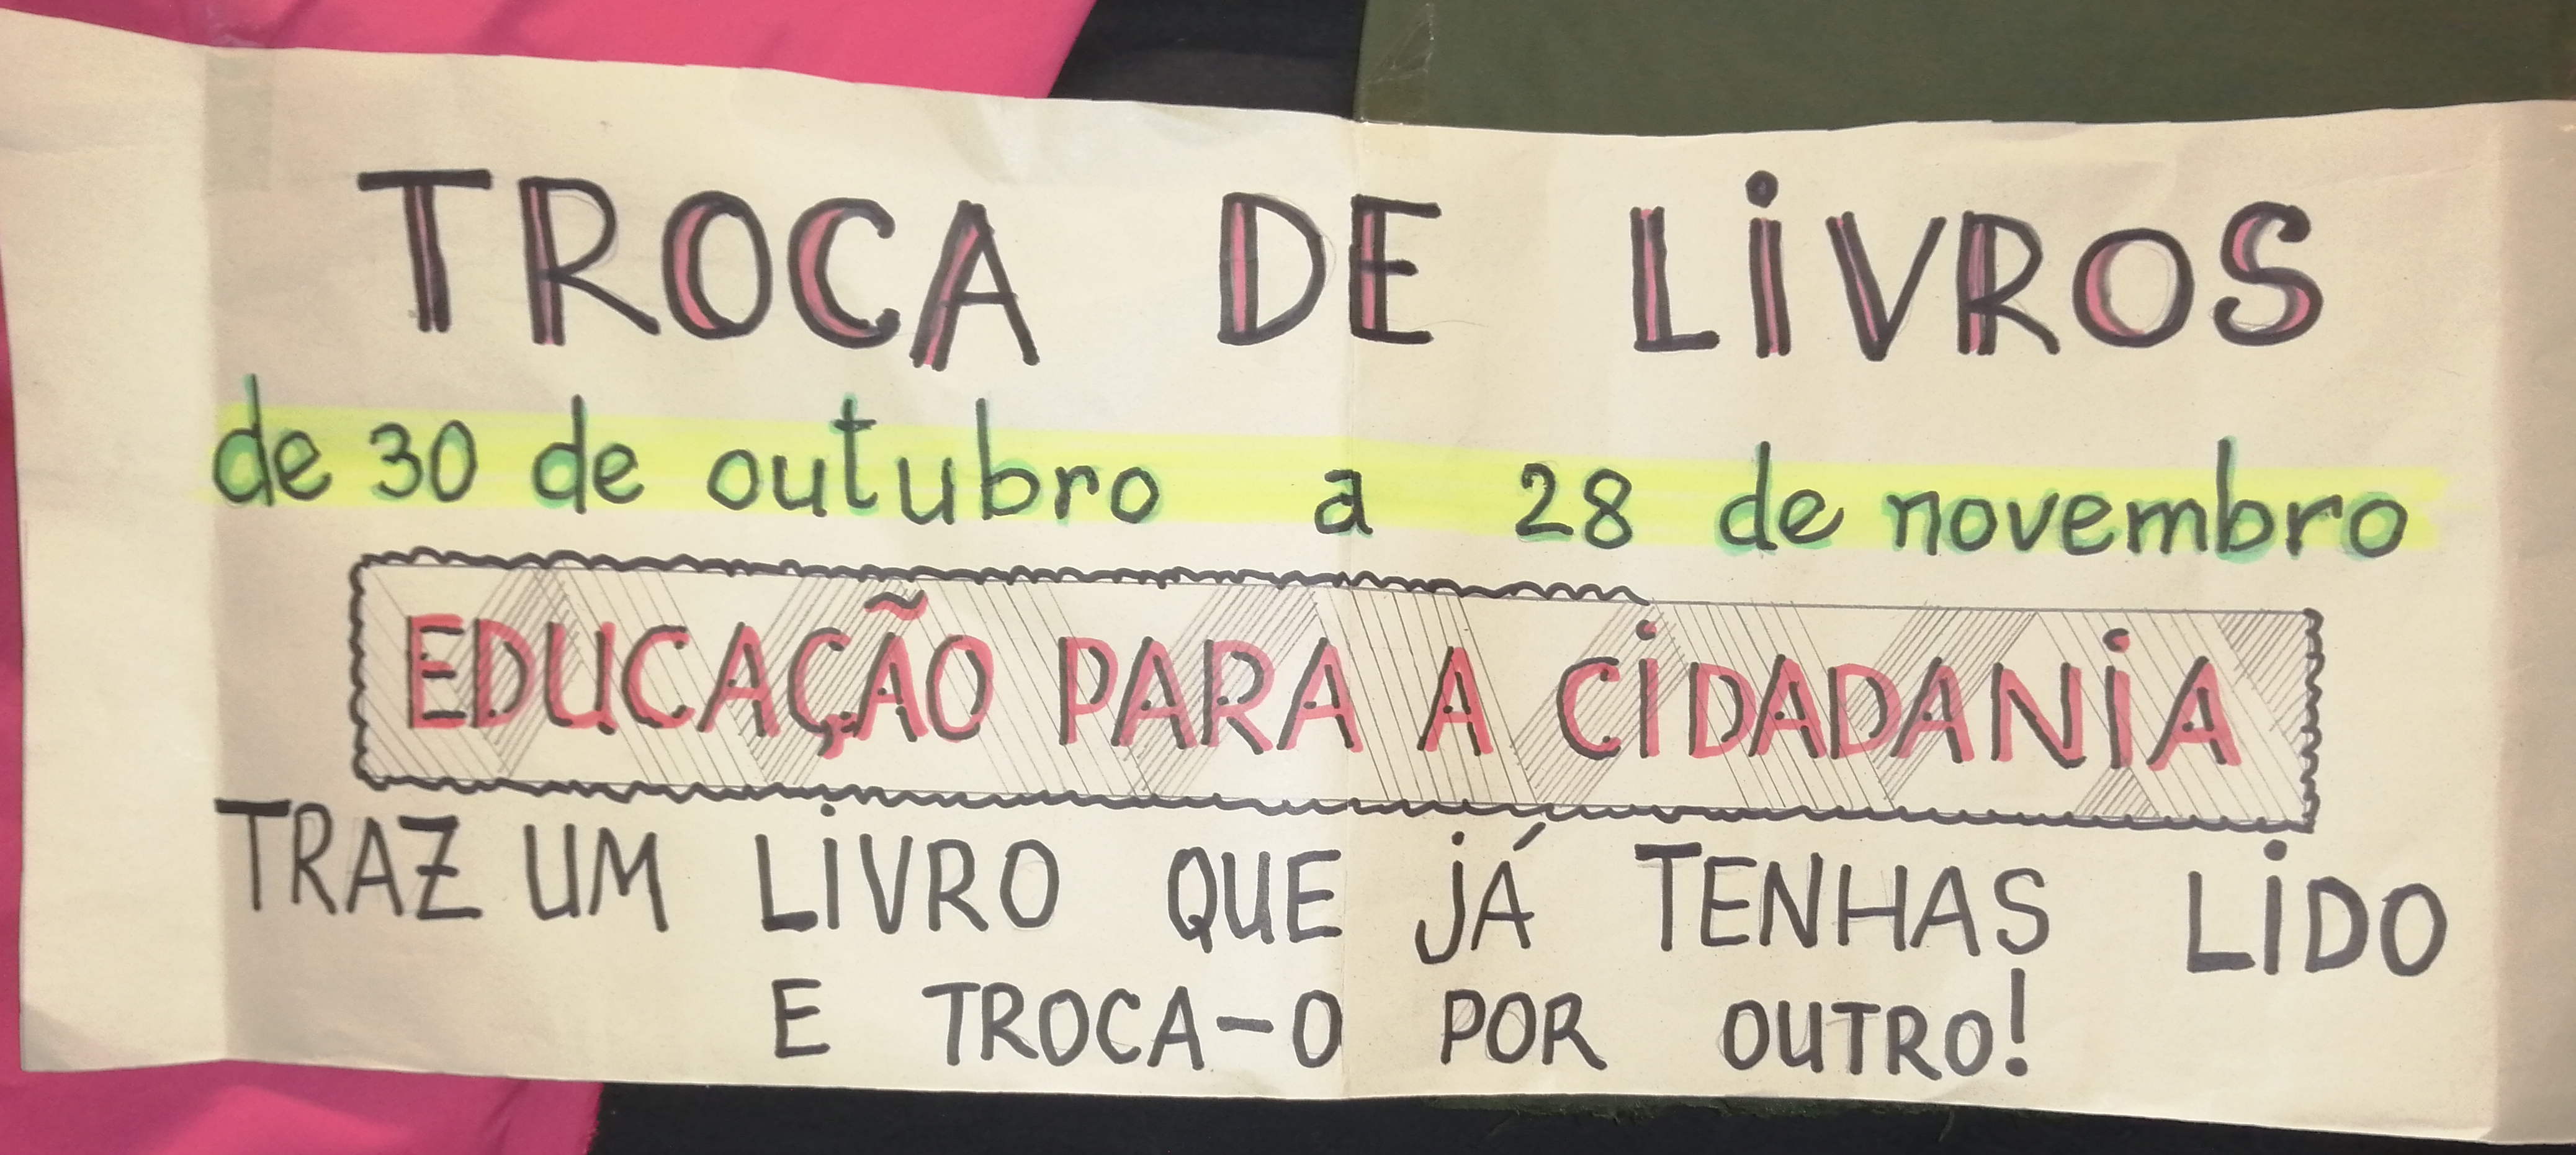 TROCA DE LIVROS
de 30 de outubro a 28 de novembro
EDUCAÇÃO PARA A CIDADANIA
TRAZ UM LIVRO QUE JÁ TENHAS LIDO
E TROCA-O POR OUTRO!